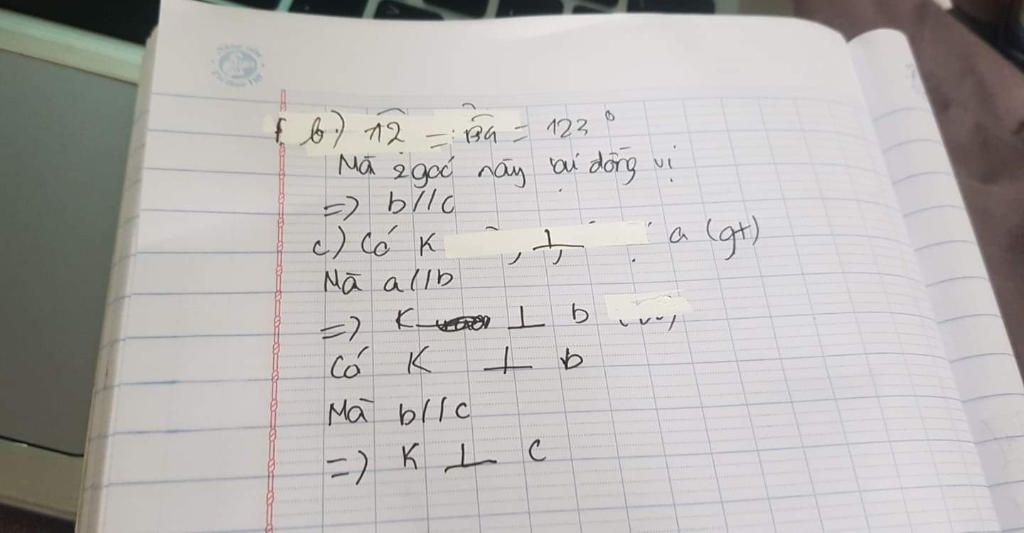 b) 12 = B4 = 123°
Mà 2 góc này ở đồng vị
=> b//c
c) Có K ⊥ a (gt)
Mà a//b
=> K ⊥ b
Có K ⊥ b
Mà b//c
=> K ⊥ c